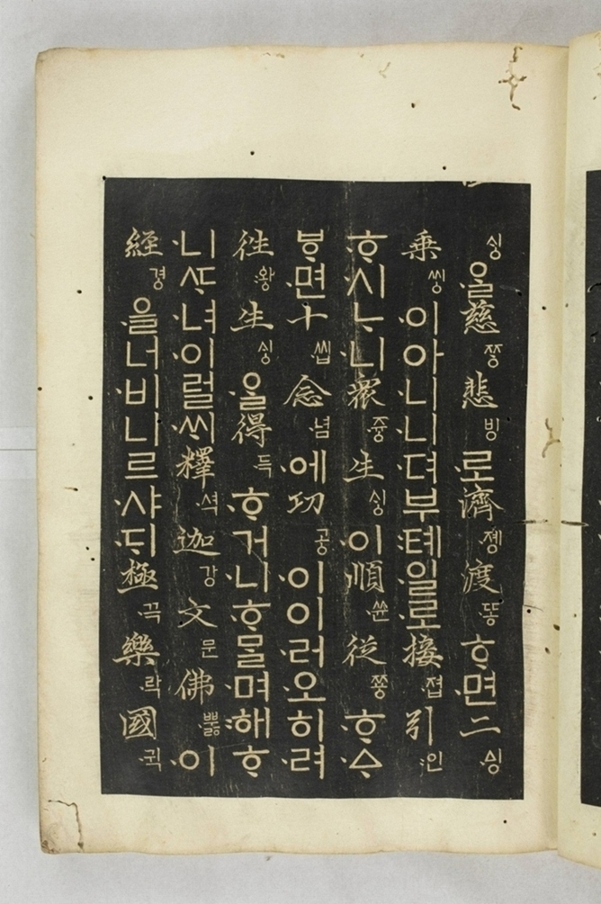 ᄉᆡᆼᄋᆞᆯ慈ᄍᆞᆼ悲빙로濟졩渡똥ᄒᆞ면二ᅀᅵᆼ
乘씽이아니니뎌부톄일로接졉引인
ᄒᆞ시ᄂᆞ니衆즁生ᄉᆡᆼ이順쓘從쭁ᄒᆞᅀᆞ
ᄫᆞ면十씹念념에功공이이러오히려
往왕生ᄉᆡᆼᄋᆞᆯ得득ᄒᆞ거니ᄒᆞᄆᆞᆯ며해ᄒᆞ
니ᄯᆞ녀이럴ᄊᆡ釋셕迦강文문佛뿛이
經경을너비니르샤ᄃᆡ極끅樂락國귁